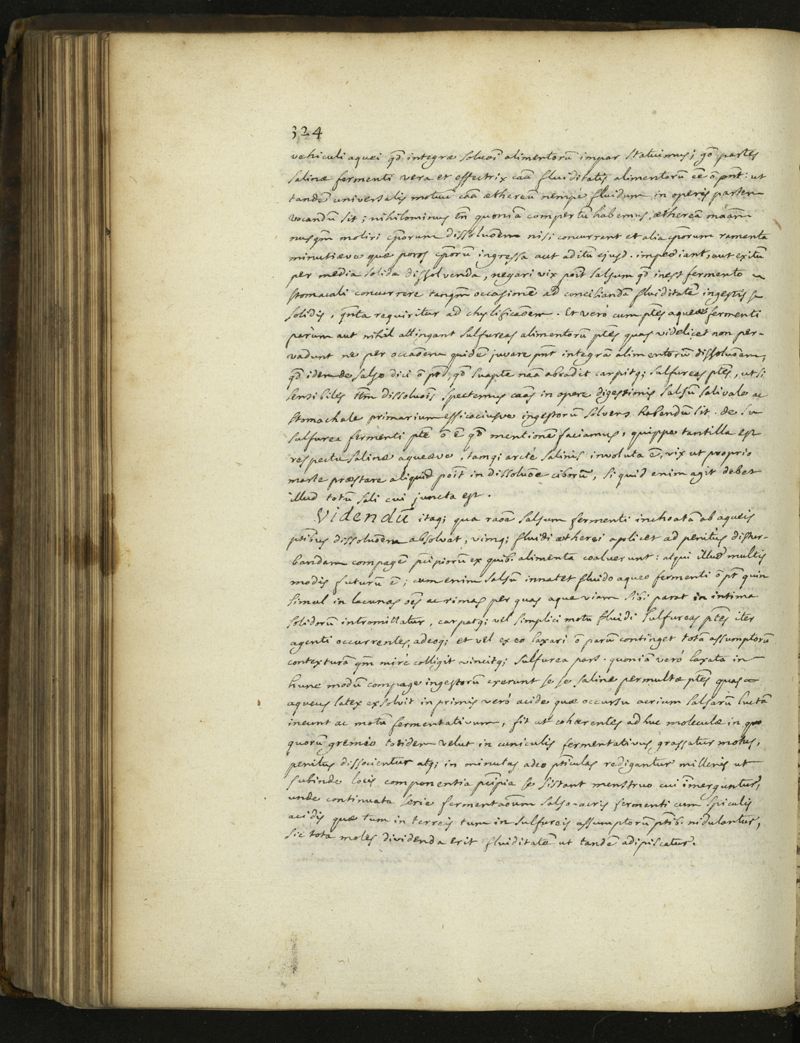 324
vehiculi aquei qd integræ soluõi alimentorũ impar statuimus; gõ partes
salinæ fermenti vera et effectrix caã fluiditatis alimentorũ eẽ õ pnt ut
tandẽ universalis motuũ caã æthereũ nempè fluidum in operis partem
vocandũ sit; nihilominus cũ quoniã compertũ habemus, ætheream mãam
nusqm moliri cporum dissoluõem nisi concurrent et alia cporum ramenta
minutiæve quæ poros cporũ ingressa aut aditũ ejusd. impediant, aut exitũ
per media solida dissolvenda, negari vix põt salsum qd inest fermento
stomacali concurrere tanqm occasionẽ ad conciliandã fluiditatẽ ingestis
solidis, qnta requiritur ad chylificaõem. Et verò cum ptes aqueæ fermenti
parùm aut nihil attingant sulfureas alimentorũ ptes quas videlicet non per-
vadunt ne per occaõem quidẽ juvare pnt integrã alimentorũ dissoluõem,
qd idem de salso dici õ pt, qd suapte nãa abradit carpitq; sulfureas ptes, ut si
sensibiles tm dissoluõis spectemus caãs in opere digestionis salsũ salivale ac
stomachale primarium efficaciusve ingestorũ solvens habendũ sit. de
sulfurea fermenti pte õ ẽ qd mentionẽ faciamus, quippe tantilla est
respectu salinæ aqueæve, tamq; arctè salinis involuta ẽ, vix ut proprio
marte præstare aliquid põit in dissoluõe ciborũ, si quid enim agit debet
illud totũ sali cui juncta est.
Videndũ itaq; qua raõe salsum fermenti inchoatã ab aqueis
ptibus dissoluõem absolvat, vimq; fluidi ætherei aplicet ad penitùs distur-
bandam compagẽ pcipiorũ ex quib; alimenta coaluerunt: atqui illud multis
modis futurũ ẽ; cum enim salsũ innatet fluido aqueo fermenti õ pt quin
simul in lacunas oẽs ac rimas per quas aque viam sibi parat in intima
solidorũ intromittatur, carpatq; vel simplici motu fluidi sulfureas ptes iter
agenti occurrentes, adeoq; et vel ex eo laxari õ parũ continget totã assumptorũ
contexturã qm mirè colligit vincitq; sulfurea pars. quoniã verò laxata in
hunc modũ compage ingestorũ exerunt se se salinæ permultæ ptes quas
aqueus latex exsolvit in primis verò acidæ quæ occursu acrium salsarũ luctã
ineunt ac motũ fermentativum, fit ut cohærentes adhuc moleculæ in
quorũ gremio totidem velut in cuniculis fermentativus grassatur motus,
penitus dissocientur atq; in minutas adeo pticulas redigantur milleris ut
subinde loeis componentia pcipia se sistant menstruo cui imerguntur,
unde continuata serie fermentaõum salso-acris fermenti cum spiculis
acidis quæ tum in terreis tum in sulfureis assumptorũ ptib; nidulantur,
sic tota moles dividenda erit fluiditatẽ ut tandẽ adipiscatur.